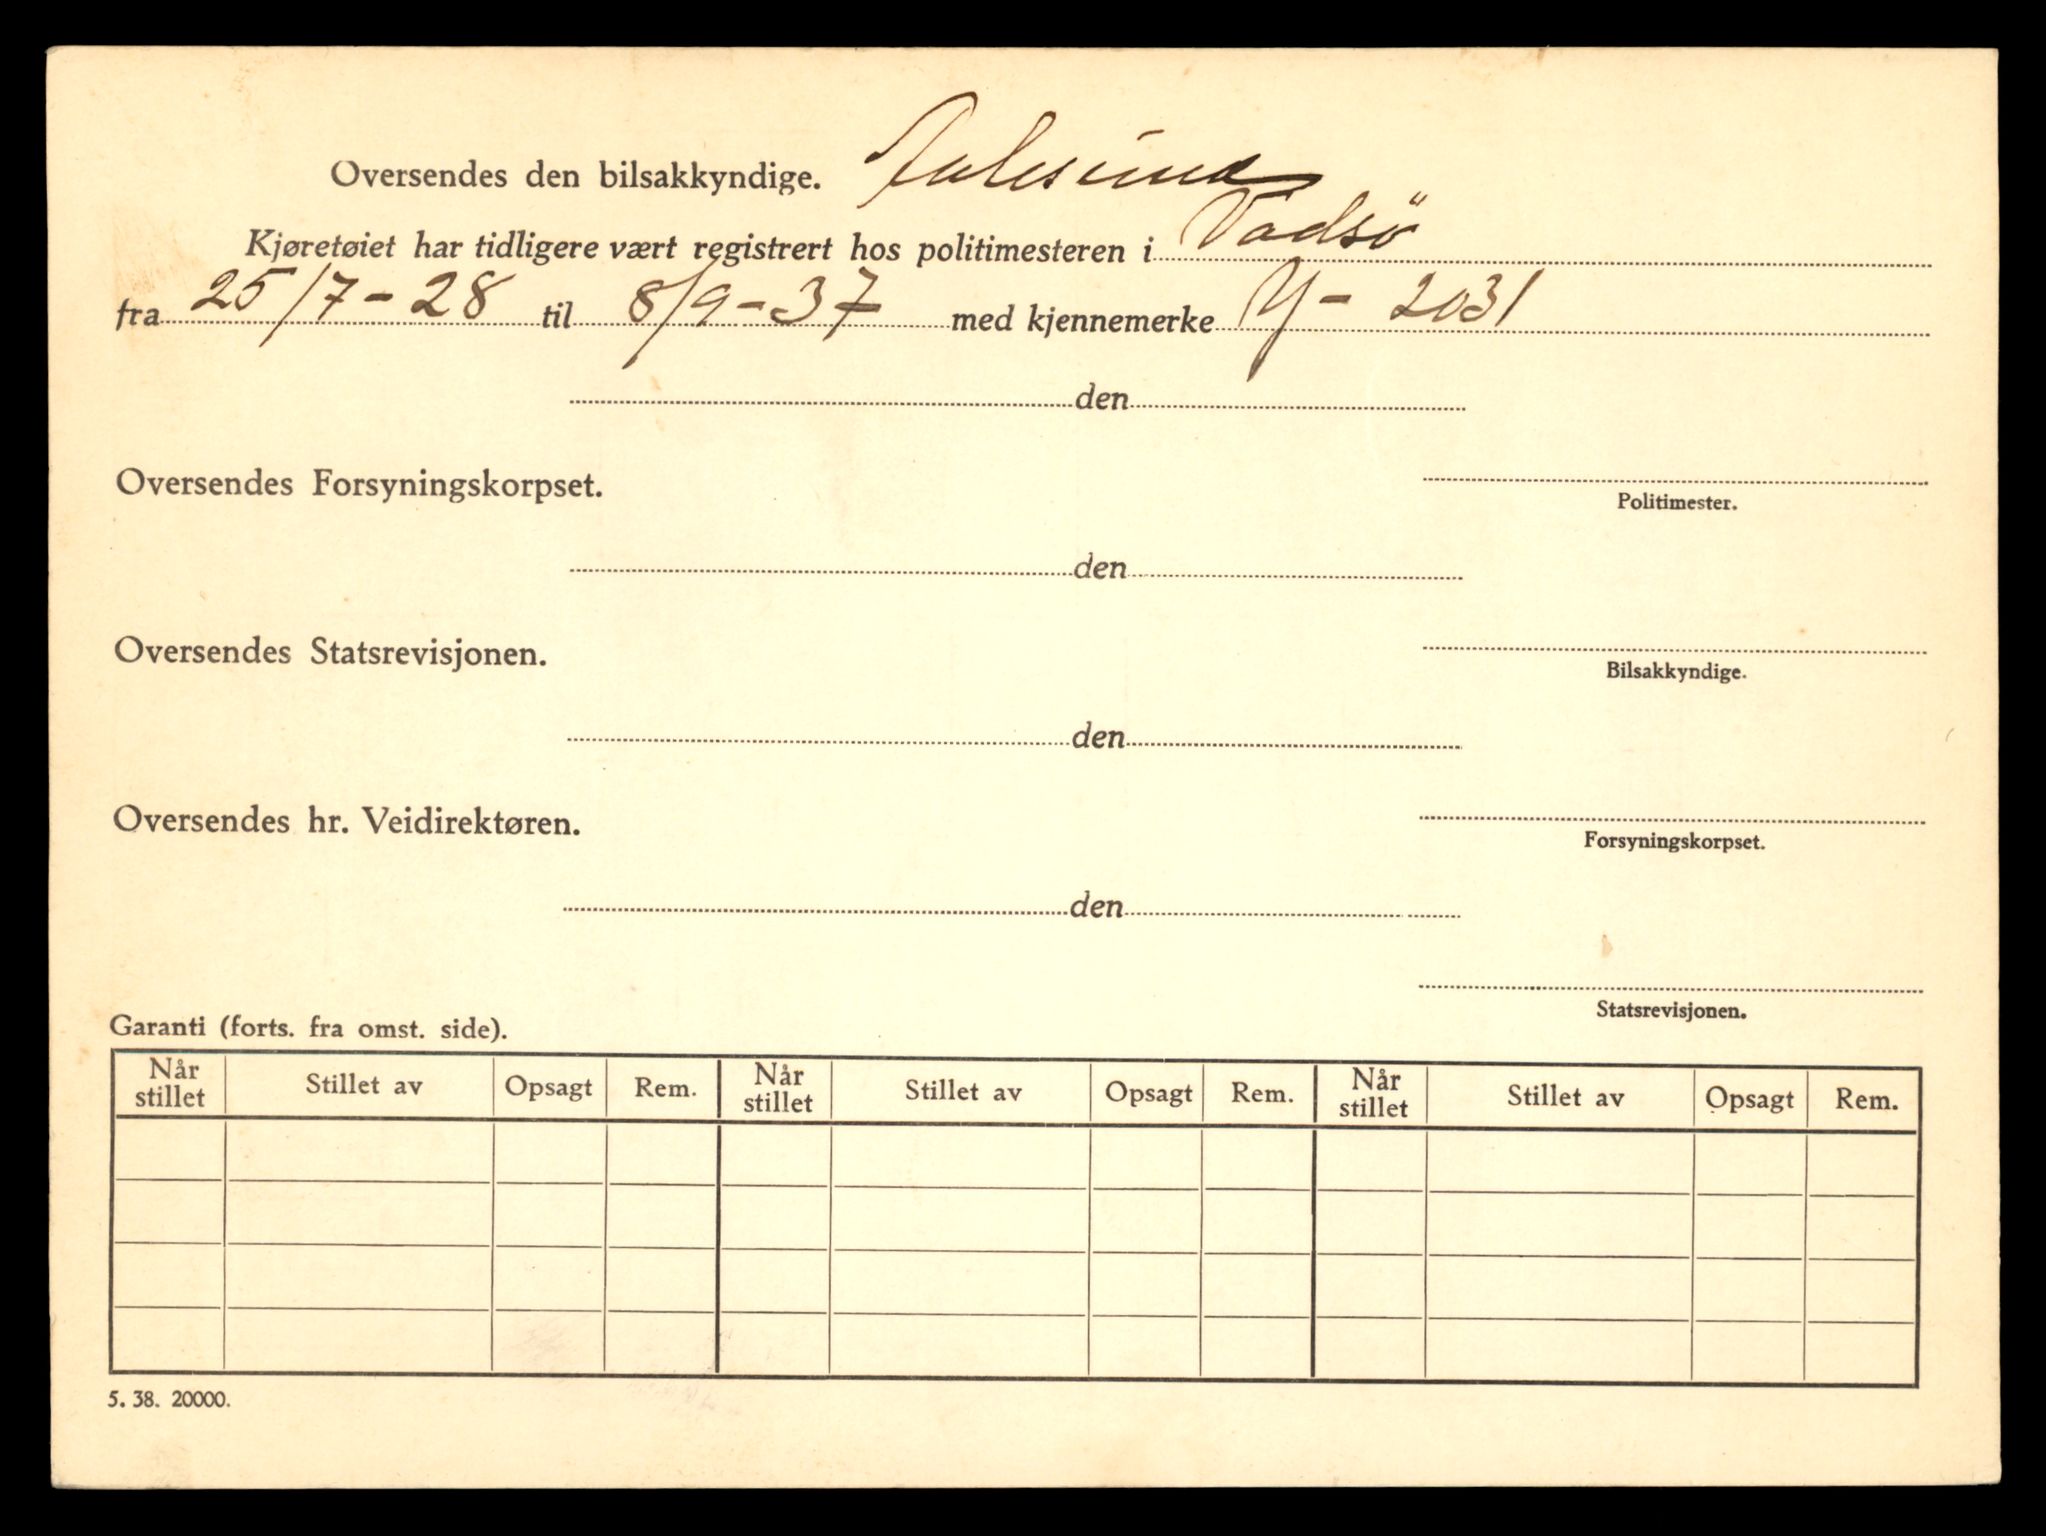 Oversendes den bilsakkyndige. Aalesund
Kjøretøiet har tidligere vært registrert hos politimesteren i Vadsö
fra 25/7-28 til 8/9-37 med kjennemerke Y- 2031
den
Oversendes Forsyningskorpset.
Politimester.
den
Oversendes Statsrevisjonen.
Bilsakkyndige.
den
Oversendes hr. Veidirektøren.
Forsyningskorpset.
den
Statsrevisjonen.
Garanti (forts. fra omst. side).
Når stillet Stillet av Opsagt Rem. Når stillet Stillet av Opsagt Rem. Når stillet Stillet av Opsagt Rem.
5. 38. 20000.